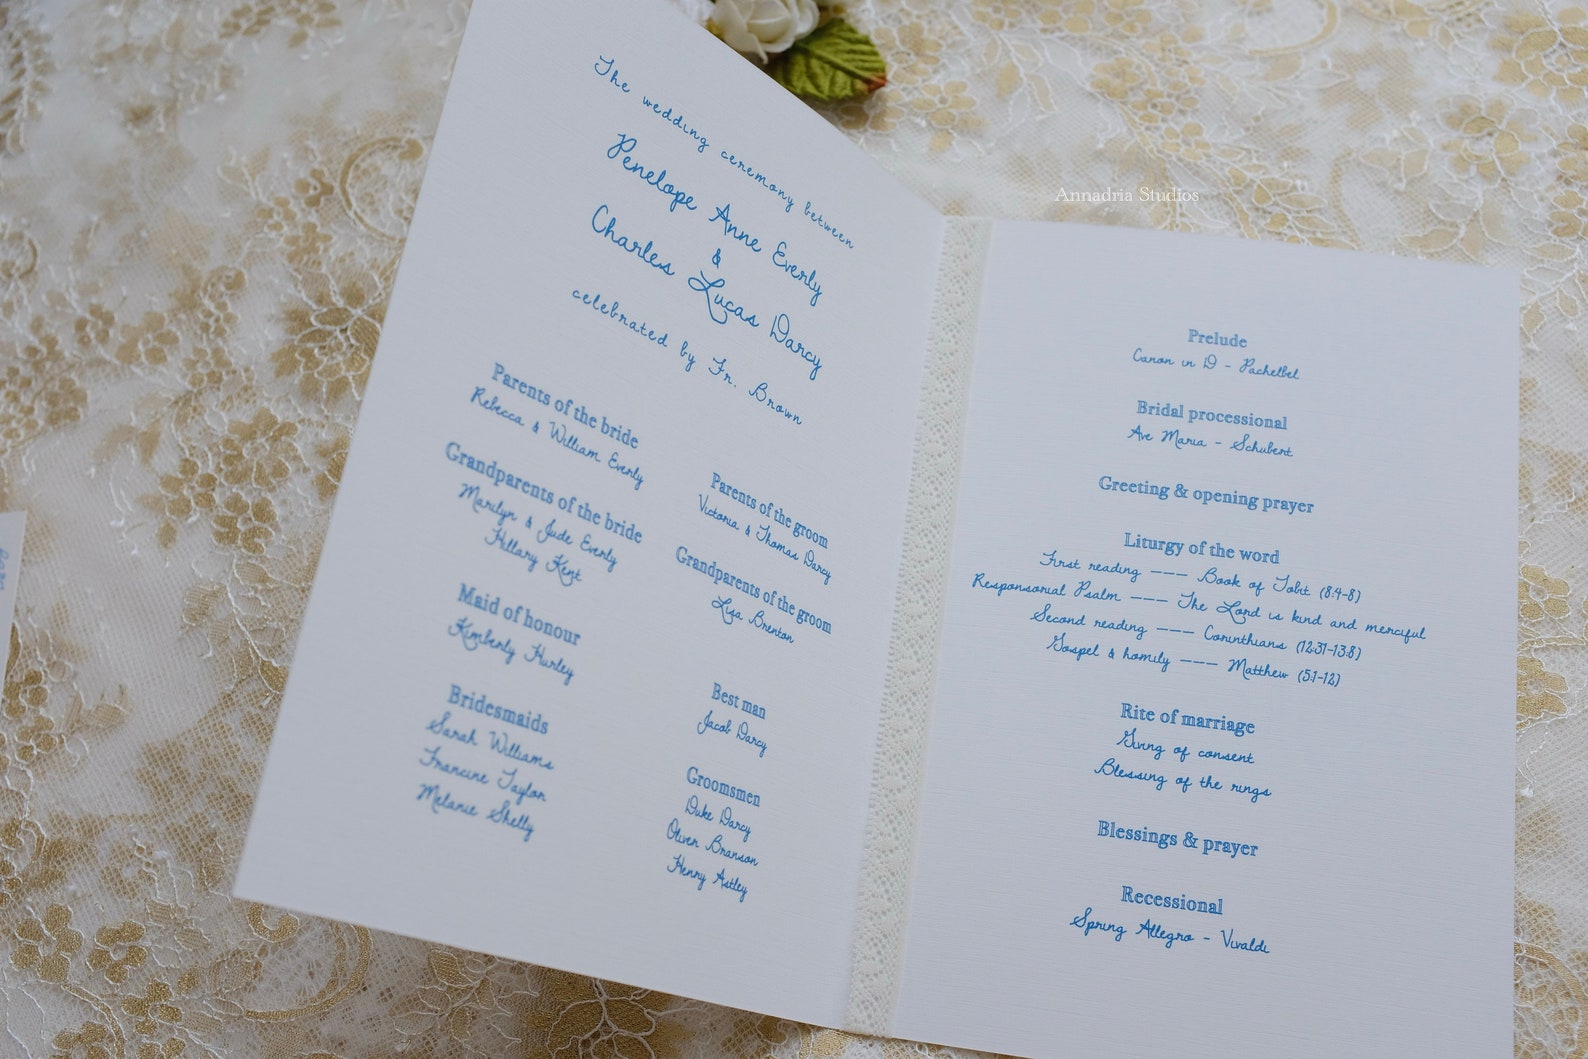 The wedding ceremony between
Penelope Anne Everly
&
Charles Lucas Darcy
celebrated by Fr. Brown
Parents of the bride
Rebecca & William Everly
Grandparents of the bride
Marilyn & Jude Everly
Hillary Kent
Maid of honour
Kimberly Hurley
Bridesmaids
Sarah Williams
Francine Taylor
Melanie Shelly
Parents of the groom
Victoria & Thomas Darcy
Grandparents of the groom
Lisa Brenton
Best man
Jacob Darcy
Groomsmen
Duke Darcy
Oliver Branson
Henry Astley
Annadria Studios
Prelude
Canon in D - Pachelbel
Bridal processional
Ave Maria - Schubert
Greeting & opening prayer
Liturgy of the word
First reading --- Book of Tobit (8:4-8)
Responsorial Psalm --- The Lord is kind and merciful
Second reading --- Corinthians (12:31-13:8)
Gospel & homily --- Matthew (5:1-12)
Rite of marriage
Giving of consent
Blessing of the rings
Blessings & prayer
Recessional
Spring Allegro - Vivaldi